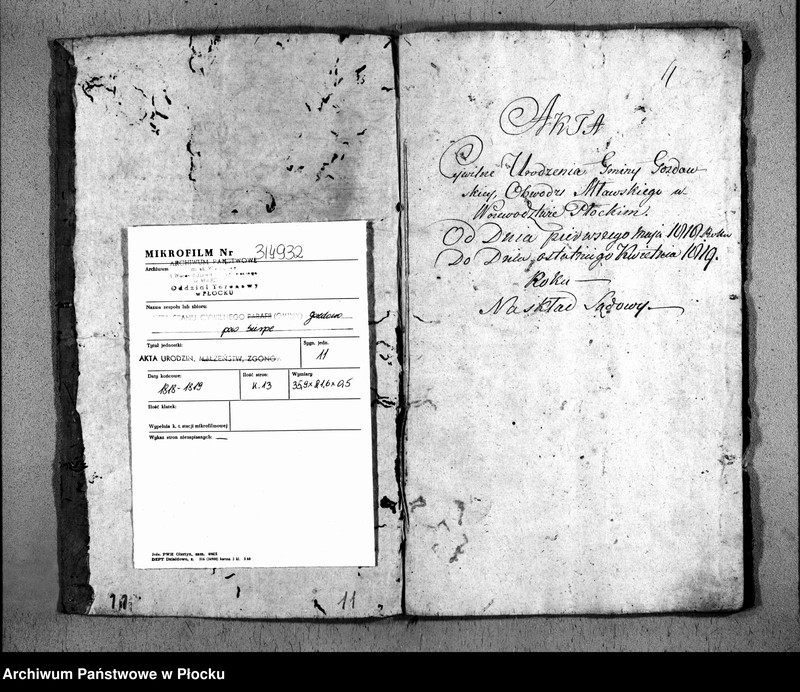 MIKROFILM Nr 314932
ARCHIWUM PAŃSTWOWE
Archiwum
Oddział Terenowy
w PŁOCKU
Nazwa zespołu lub zbioru:
CYWILNEGO PARAFII (GMINY)
Tytuł jednostki:
Sygn. jedn.
AKTA URODZIN, MAŁŻEŃSTW, ZGONÓW
11
Daty końcowe:
Ilość stron:
Wymiary
1818-1819
k. 13
35,9x21,6x0,5
Ilość klatek:
Wypełnia k. t. stacji mikrofilmowej
Wykaz stron niezapisanych: —
11
4
AKTA
Cywilne Urodzenia Gminy Gozdaw
skiey, Obwodu Mławskiego w
Woiewodztwie Płockim.
Od Dnia pierwszego maja 1818 Roku
Do Dnia ostatniego Kwietnia 1819.
Roku —
Na skład Sądowy
Archiwum Państwowe w Płocku